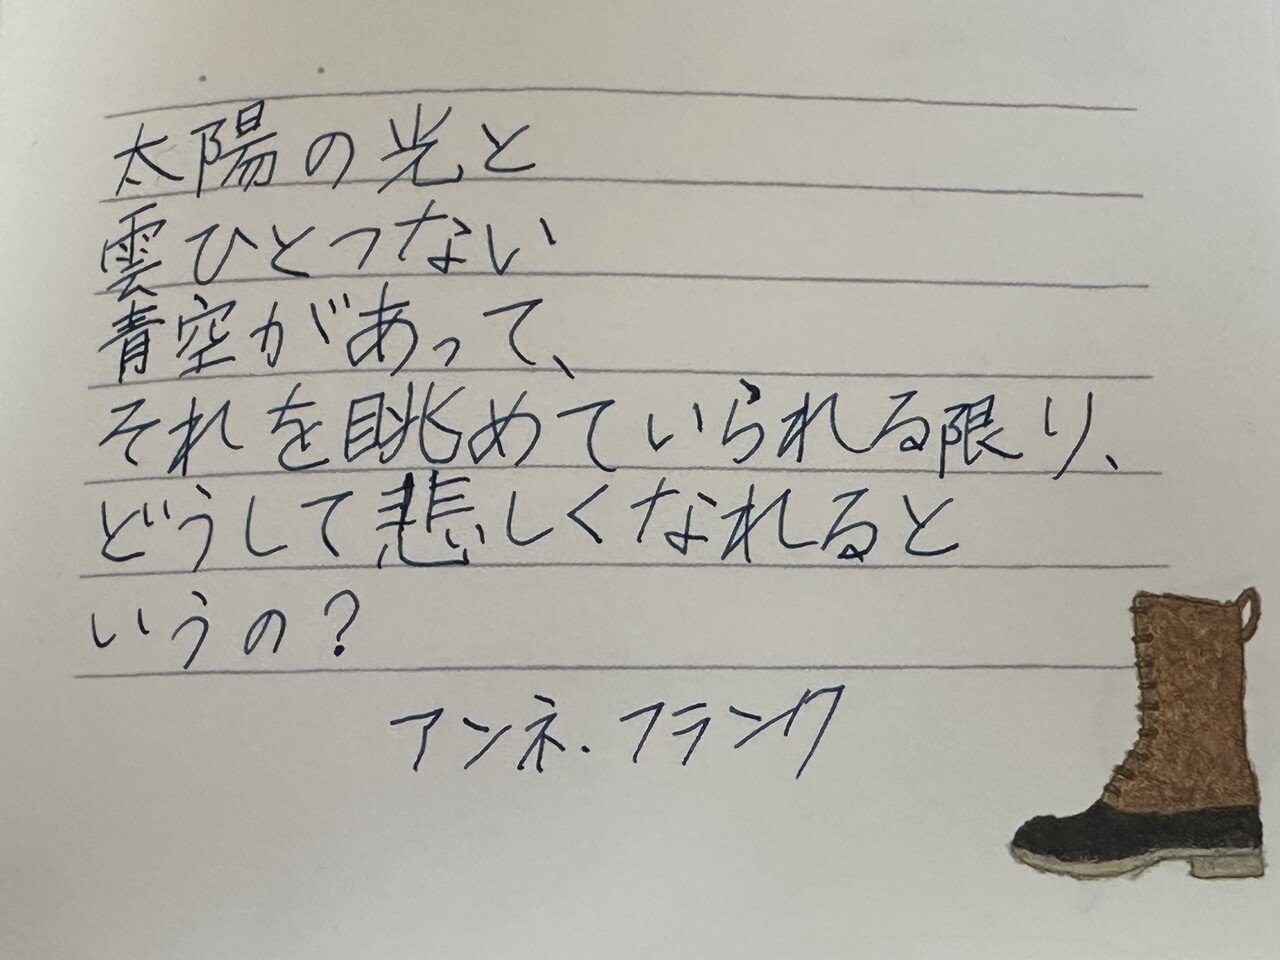 太陽の光と
雲ひとつない
青空があって、
それを眺めていられる限り、
どうして悲しくなれると
いうの?
アンネ・フランク